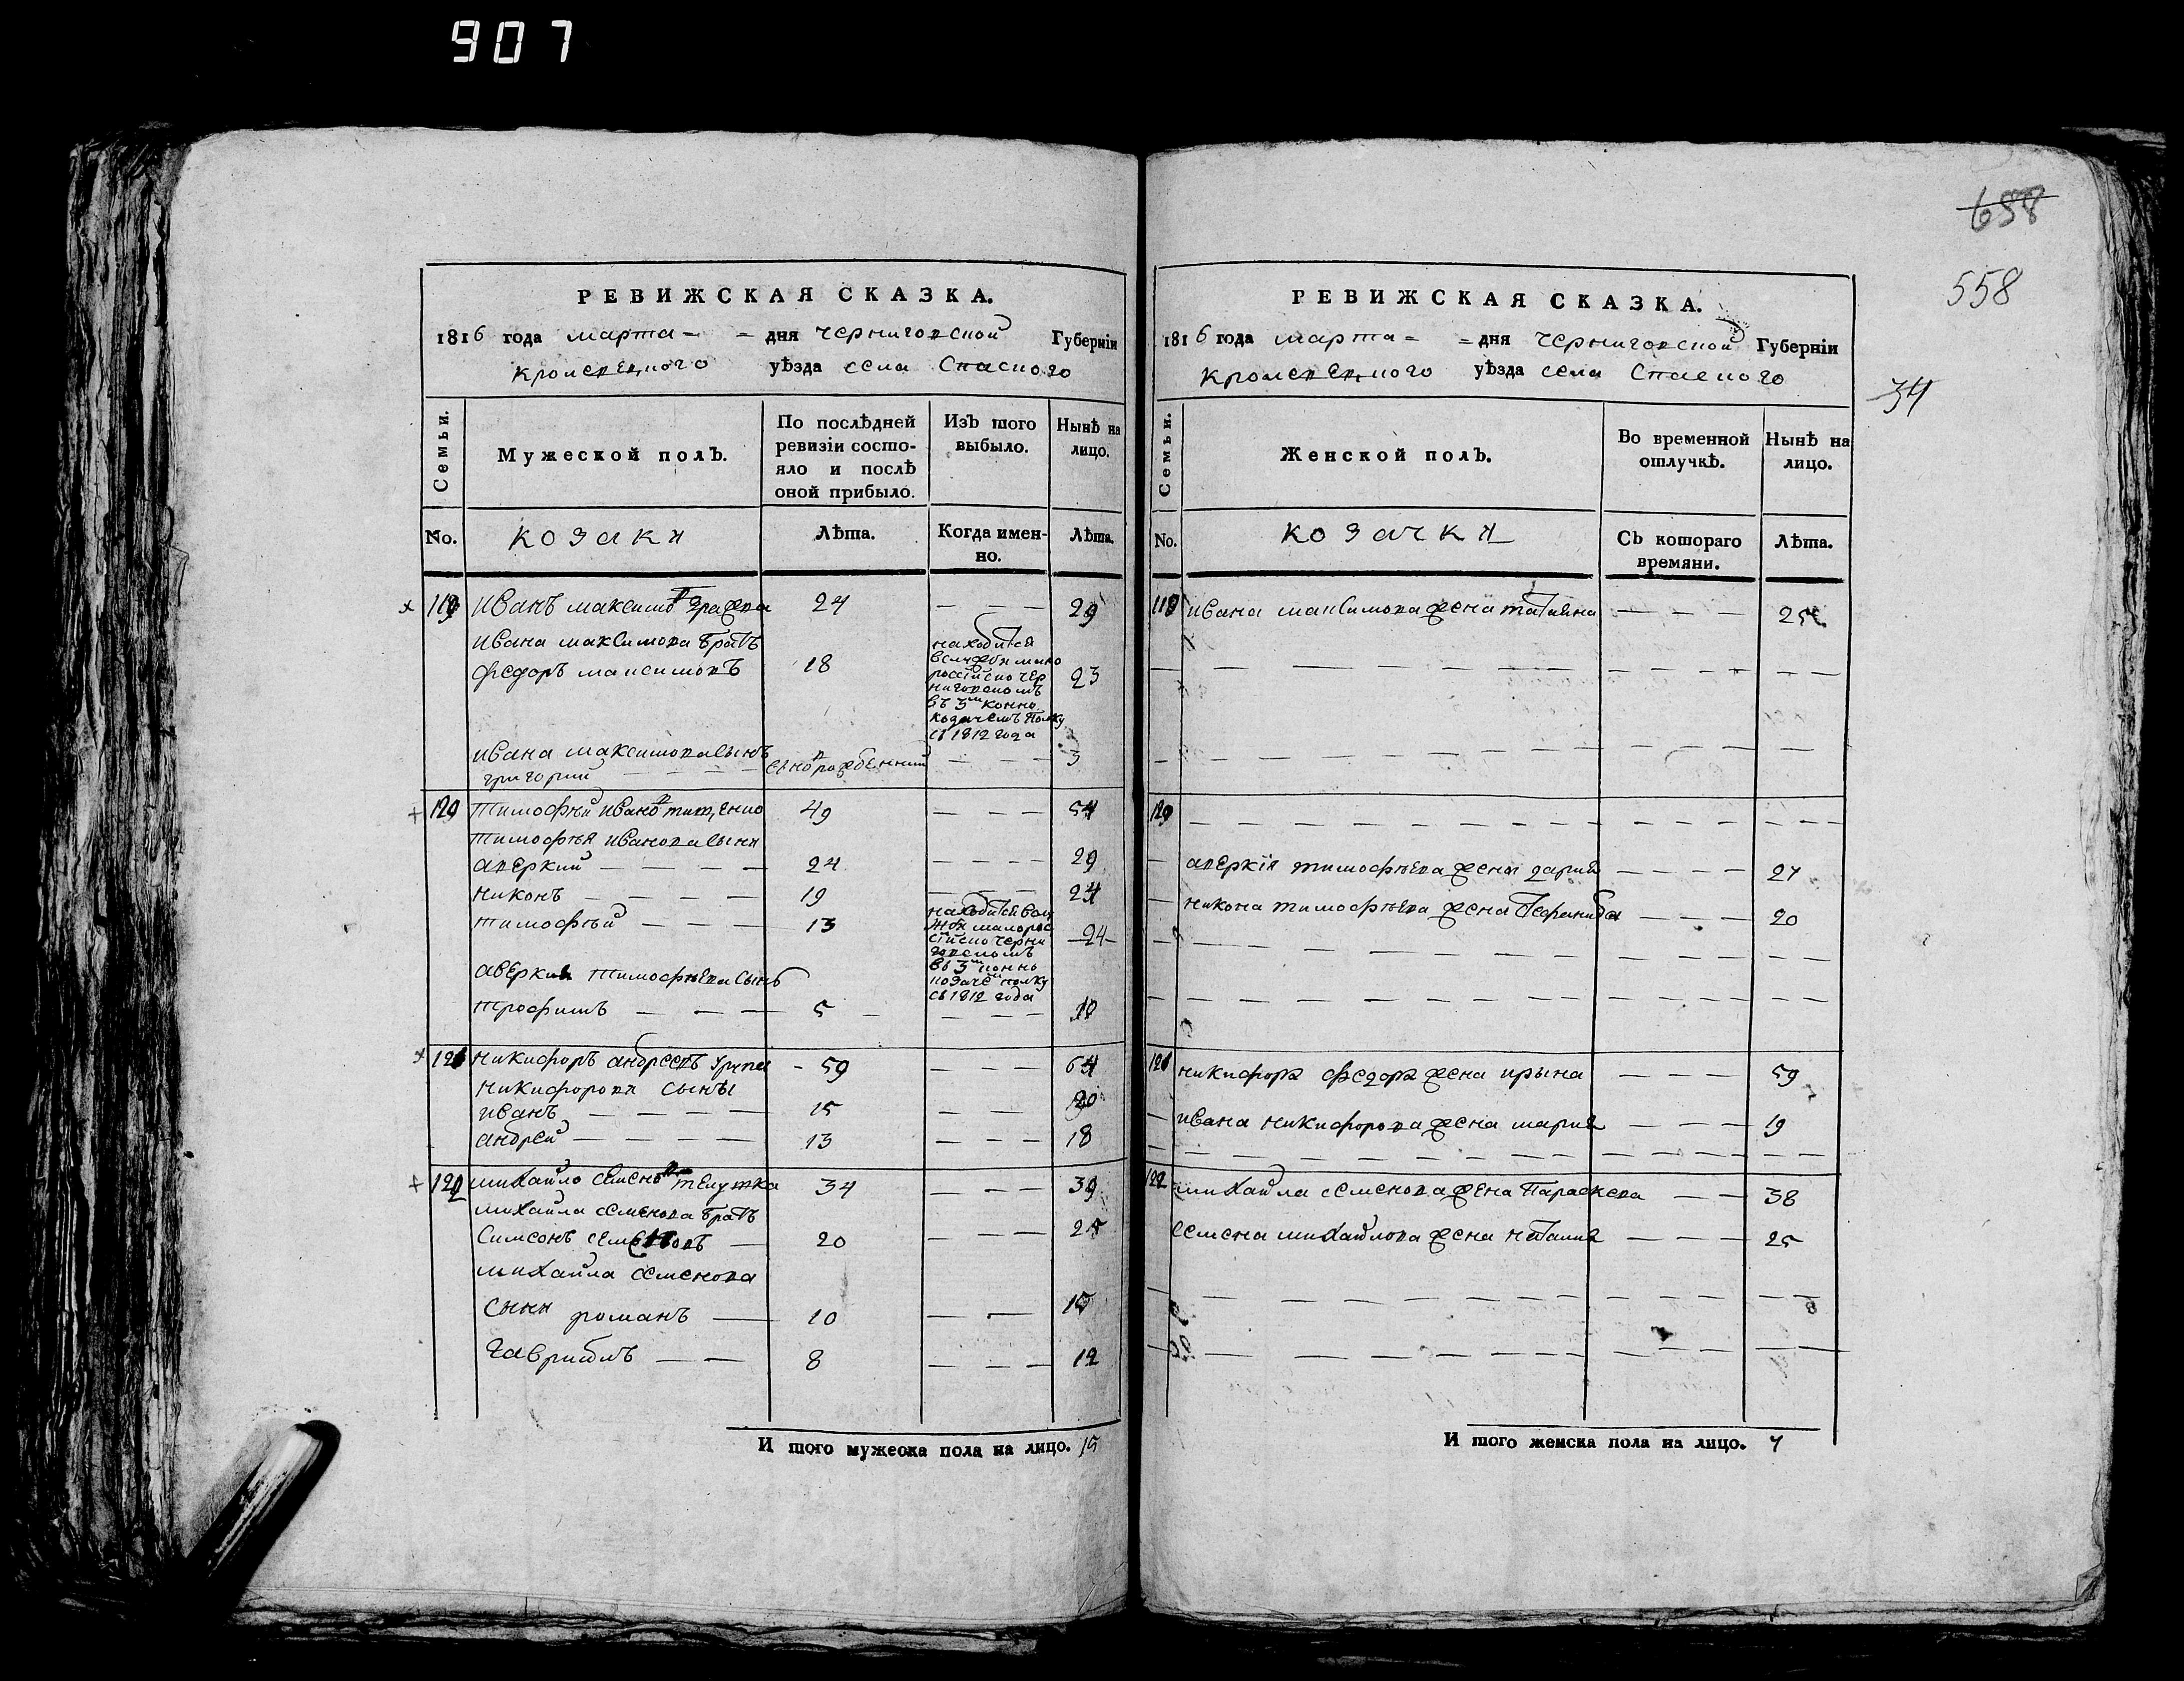 907
658
558
34
РЕВИЖСКАЯ СКАЗКА.
1816 года марта = = дня черниговской Губерніи
кролевецкого уѣзда села Спаского
Семьи.
Мужеской полъ.
По послѣдней
ревизіи состо-
яло и послѣ
оной прибыло.
Изъ того
выбыло.
Нынѣ на
лицо.
No.
козаки
Лѣта.
Когда имен-
но.
Лѣта.
119 иванъ максимов 24 — — — 29
ивана максимова братъ
федоръ максимовъ 18 23
находится
в службѣ мало
российско чер
ниговскомъ
въ 3м конно
козачемъ полку
съ 1812 года
ивана максимова сынъ
григорий — — — — новорожденний — — — 3
120 тимофѣй иванов — 49 — — — 54
тимофѣя иванова сыны
аверкий — — — — 24 — — — — 29
никонъ — — — — 19 — — — 24
тимофѣй — — — 13 —24—
находится в слу
жбѣ малорос
сийско черни
говскомъ
въ 3м конно
козаче полку
съ 1812 года
аверкия тимофѣева сынъ
трофимъ — — — 5 — — — — 10
121 никифоръ андреевъ - 59 — — — 64
никифорови сыны
иванъ — — — — 15 — — — 20
андрей — — — — 13 — — — 18
122 михайло семенов телушка 34 — — — 39
михайла семенова братъ
симсонъ семеновъ — 20 — — — 25
михайла семенова
сыни романъ — 10 — — 15
гавриилъ — — 8 — — — 12
И того мужеска пола на лицо. 15
РЕВИЖСКАЯ СКАЗКА.
1816 года марта = = дня черниговской Губерніи
кролевецкого уѣзда села Спаского
Семьи.
Женской полъ.
Во временной
отлучкѣ.
Нынѣ на
лицо.
No.
козачки
Съ котораго
времяни.
Лѣта.
119 ивана максимова жена татияна — — — 25
120 — — — — — —
аверкія тимофѣева жена дария — — — — 27
никона тимофѣева жена — — — 20
121 никифора федора жена ирына — — — 59
ивана никифорова жена мария — — — 19
122 михайла семенова жена параскева — — 38
семена михайлова жена наталия — — — 25
И того женска пола на лицо. 7